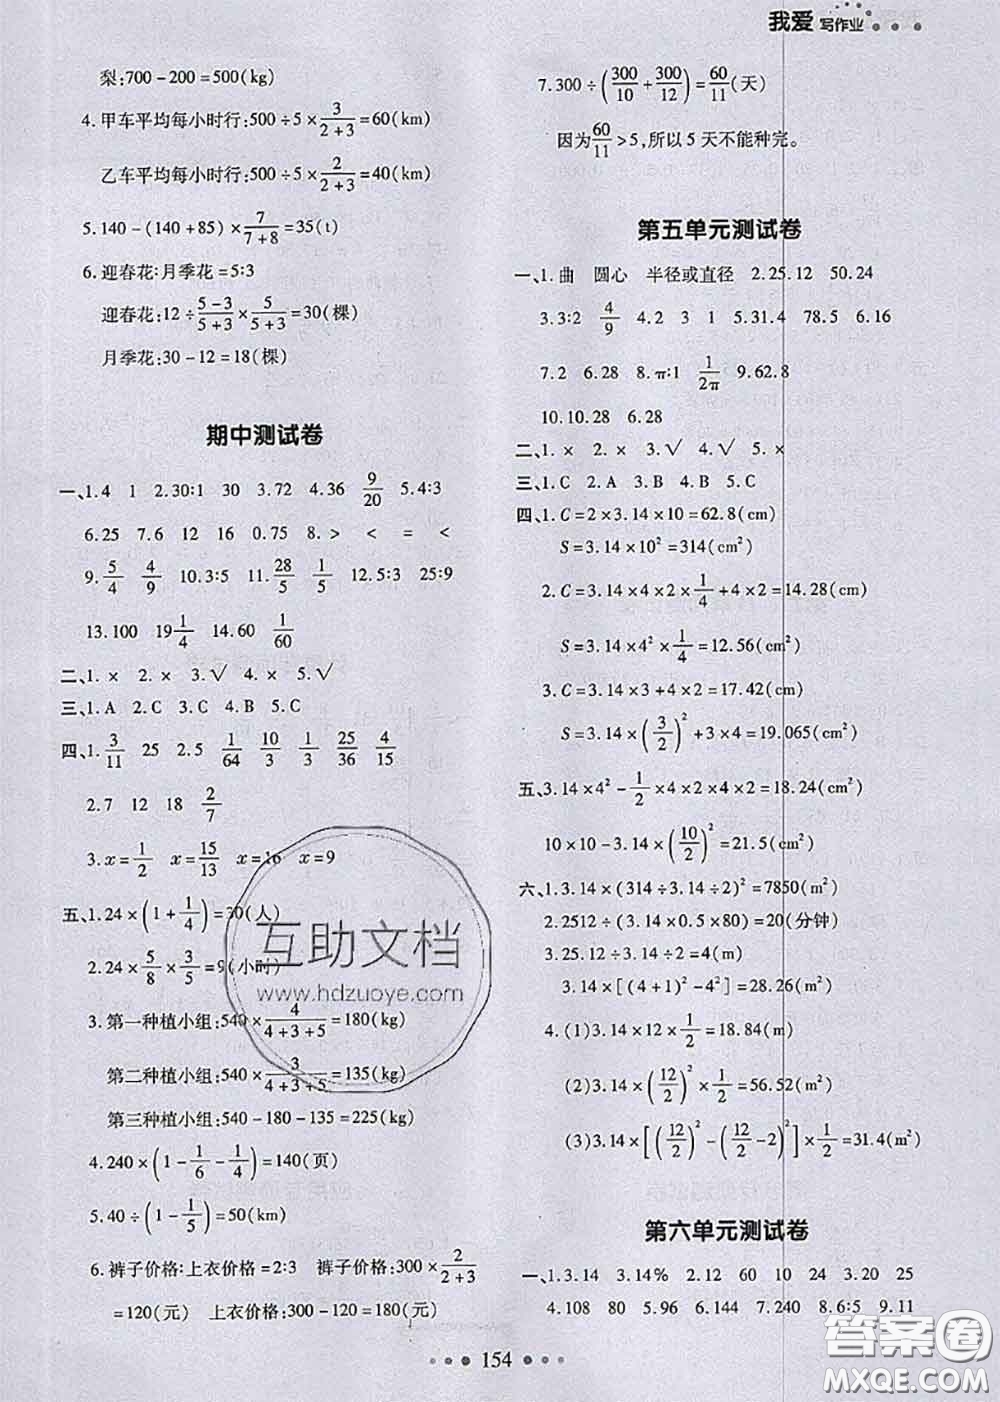 我爱 写作业
梨:700-200=500(kg)
4.甲车平均每小时行:500÷5×3/(2+3)=60(km)
乙车平均每小时行:500÷5×2/(2+3)=40(km)
5.140-(140+85)×7/(7+8)=35(t)
6.迎春花:月季花=5:3
迎春花:12÷(5-3)/(5+3)×5/(5+3)=30(棵)
月季花:30-12=18(棵)
期中测试卷
一、1.4 1 2.30:1 30 3.72 4.36 9/20 5.4:3
6.25 7.6 12 16 0.75 8.> < = <
9.5/4 4/9 10.3:5 11.28/5 1/5 12.5:3 25:9
13.100 19 1/4 14.60 1/60
二、1.× 2.× 3.√ 4.× 5.√
三、1.A 2.C 3.C 4.B 5.C
四、1.3/11 25 2.5 1/64 10/3 1/3 25/36 4/15
2.7 12 18 2/7
3.x=1/2 x=15/13 x=16 x=9
五、1.24×(1+1/4)=30(人)
2.24×5/8×3/5=9(小时)
3.第一种植小组:540×4/(4+3+5)=180(kg)
第二种植小组:540×3/(4+3+5)=135(kg)
第三种植小组:540-180-135=225(kg)
4.240×(1-1/6-1/4)=140(页)
5.40÷(1-1/5)=50(km)
6.裤子价格:上衣价格=2:3 裤子价格:300×2/(2+3)
=120(元) 上衣价格:300-120=180(元)
7.300÷(300/10+300/12)=60/11(天)
因为60/11>5,所以5天不能种完。
第五单元测试卷
一、1.曲 圆心 半径或直径 2.25.12 50.24
3.3:2 4/9 4.2 3 1 5.31.4 78.5 6.16
7.2 6.28 8.π:1 1/2π 9.62.8
10.10.28 6.28
二、1.× 2.× 3.√ 4.√ 5.×
三、1.C 2.A 3.B 4.B 5.C
四、1.C=2×3.14×10=62.8(cm)
S=3.14×10²=314(cm²)
2.C=3.14×4×2×1/4+4×2=14.28(cm)
S=3.14×4²×1/4=12.56(cm²)
3.C=3.14×3+4×2=17.42(cm)
S=3.14×(3/2)²+3×4=19.065(cm²)
五、3.14×4²-1/2×4×2×4×2=18.24(cm²)
10×10-3.14×(10/2)²=21.5(cm²)
六、1.3.14×(314÷3.14÷2)²=7850(m²)
2.2512÷(3.14×0.5×80)=20(分钟)
3.25.12÷3.14÷2=4(m)
3.14×[(4+1)²-4²]=28.26(m²)
4.(1)3.14×12×1/2=18.84(m)
(2)3.14×(12/2)²×1/2=56.52(m²)
(3)3.14×[(12/2)²-(12/2-2)²]×1/2=31.4(m²)
第六单元测试卷
一、1.3.14 3.14% 2.12 60 10 24 3.20 25
4.108 80 5.96 6.144 7.240 8.6:5 9.11
154
互助文档
www.hdzuoye.com
答案圈
MXQE.COM